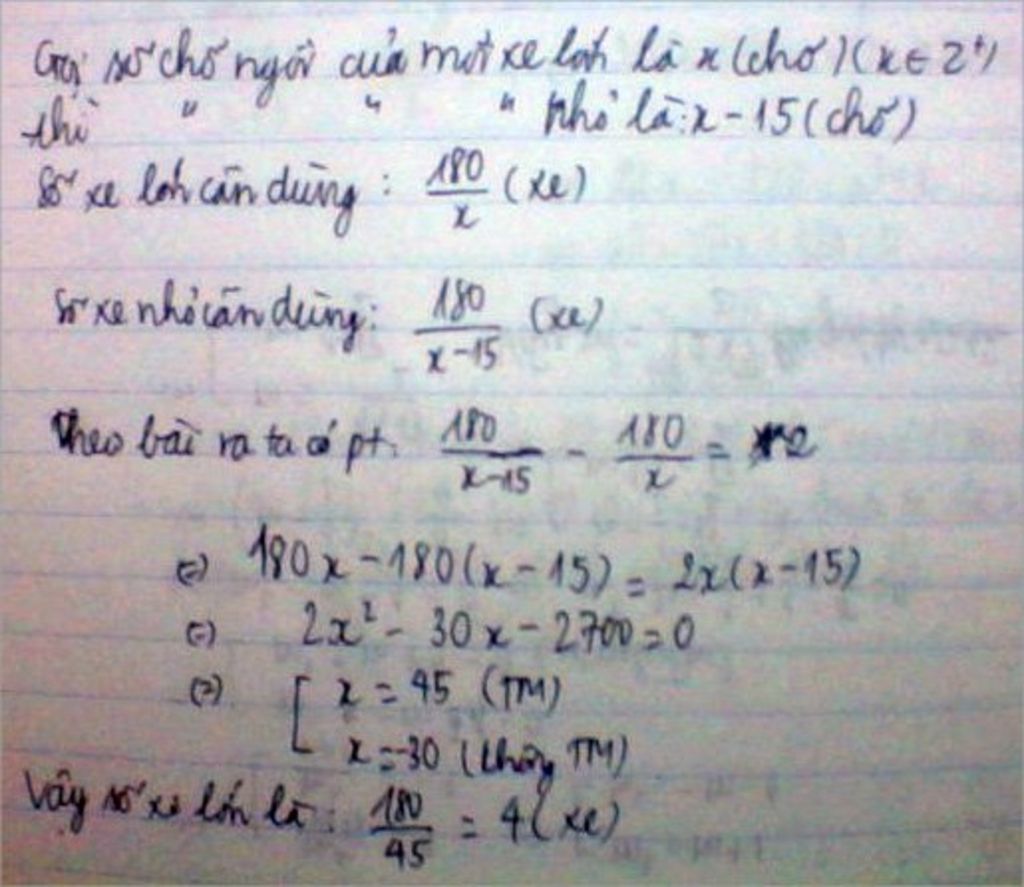 Gọi số chỗ ngồi của một xe lớn là x (chỗ) (x ∈ Z⁺)
thì " " " nhỏ là: x - 15 (chỗ)
Số xe lớn cần dùng : 180/x (xe)
Số xe nhỏ cần dùng: 180/(x-15) (xe)
Theo bài ra ta có pt: 180/(x-15) - 180/x = 2
(=) 180x - 180(x - 15) = 2x(x - 15)
(=) 2x² - 30x - 2700 = 0
(=) [ x = 45 (TM)
x = -30 (không TM)
Vậy số xe lớn là: 180/45 = 4 (xe)